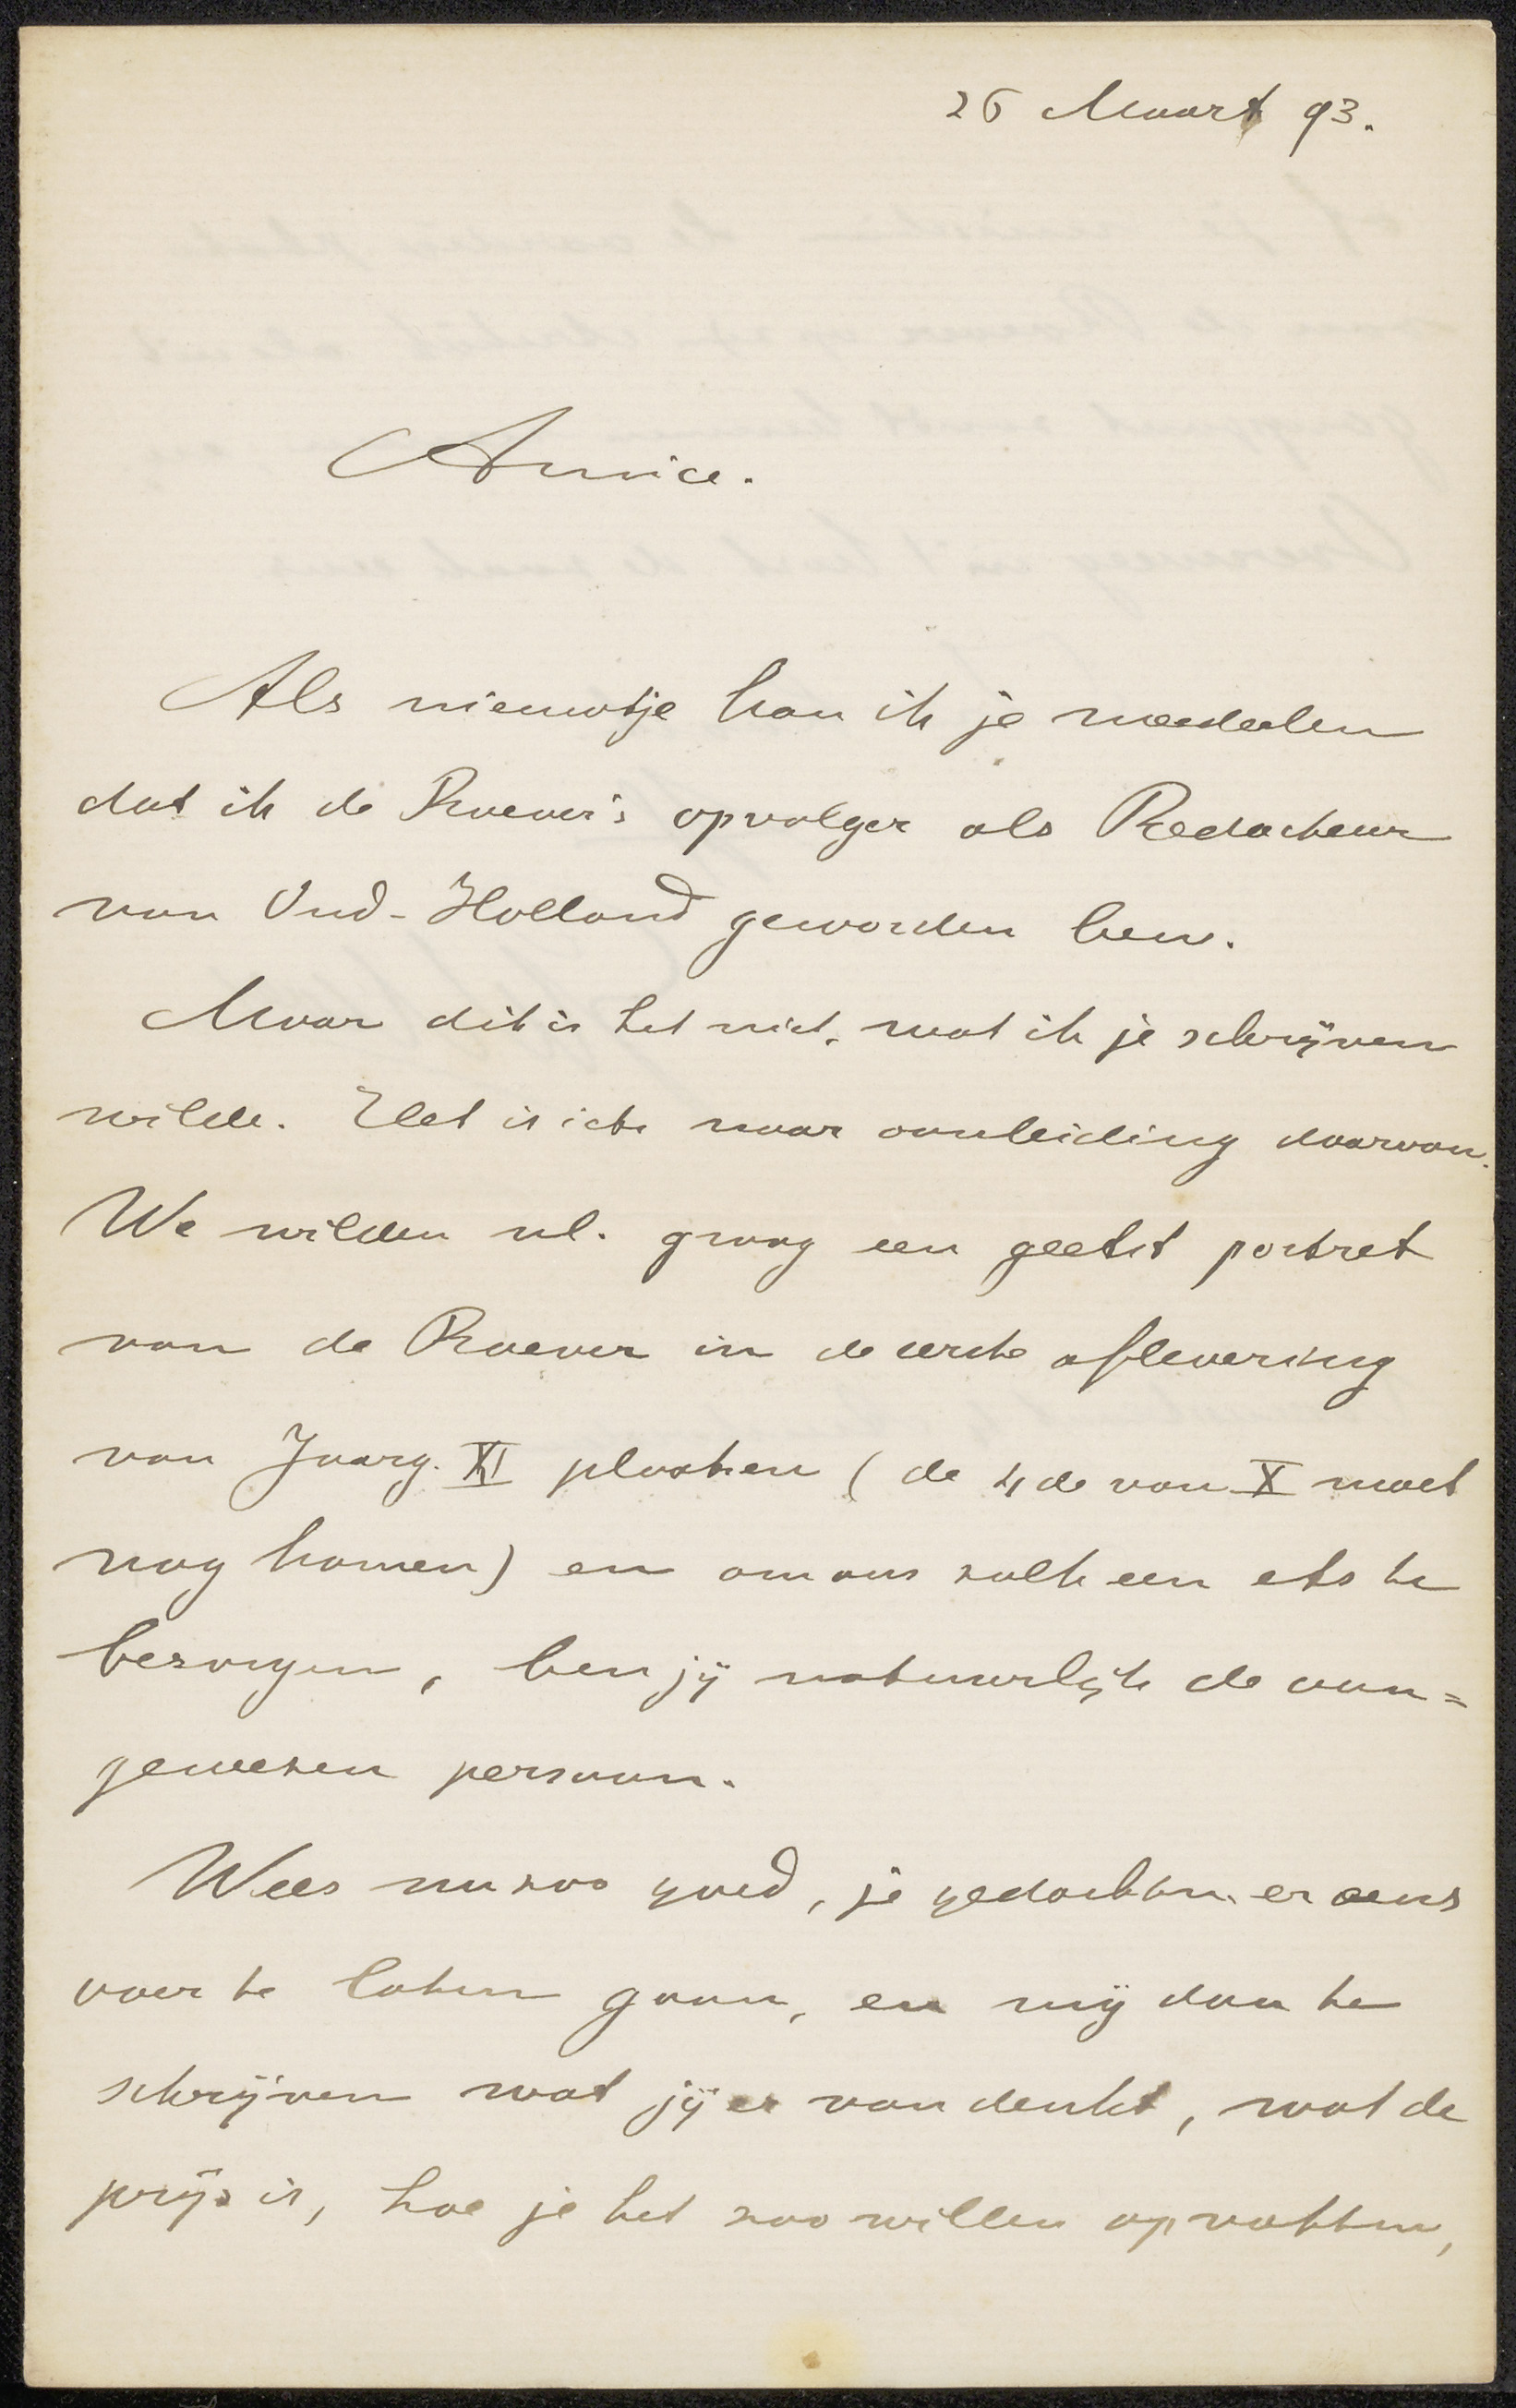 26 Maart 93.
Amice.
Als nieuwtje kan ik je mededeelen
dat ik de Roever's opvolger als Redacteur
van Oud-Holland geworden ben.
Maar dit is het niet, wat ik je schrijven
wilde. Het is iets naar aanleiding daarvan.
We wilden nl. graag een geëtst portret
van de Roever in de eerste aflevering
van Jaarg. XI plaatsen (de 4de van X moet
nog komen) en om ons zulk een ets te
bezorgen, ben jij natuurlijk de aan=
gewezen persoon.
Wees nu zoo goed, je gedachten er eens
over te laten gaan, en mij dan te
schrijven wat jij er van denkt, wat de
prijs is, hoe je het zoo willen opvatten,